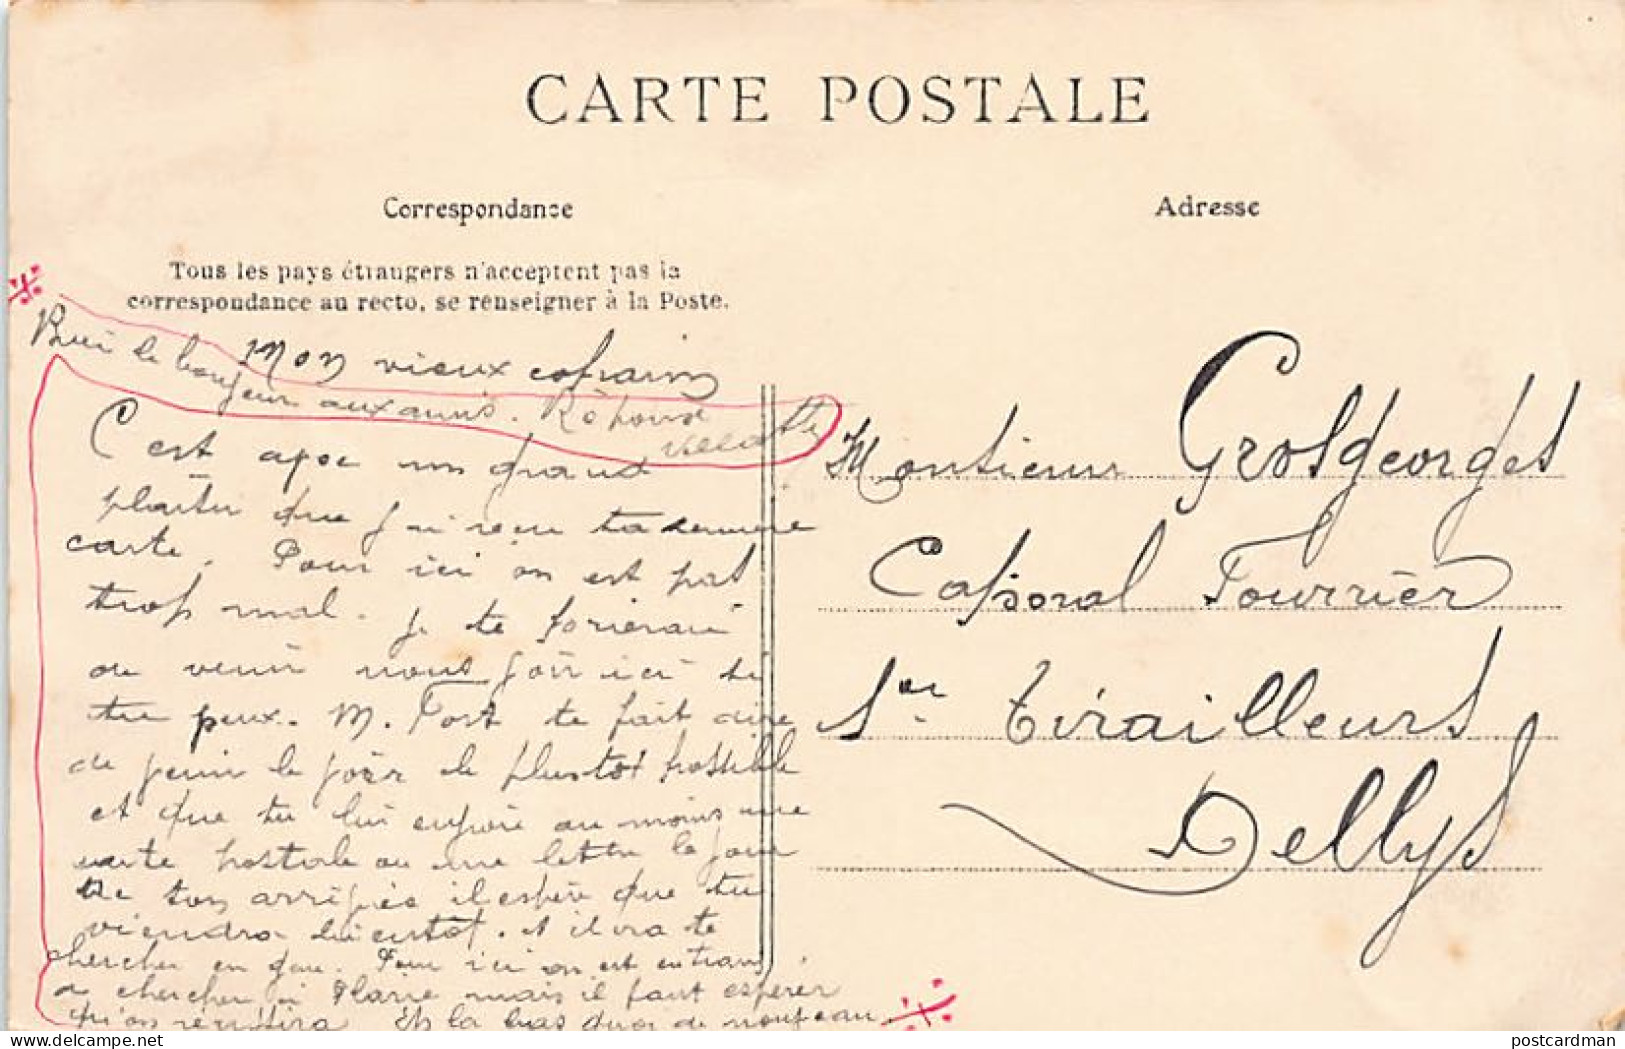 CARTE POSTALE
Correspondance
Adresse
Tous les pays étrangers n'acceptent pas la
correspondance au recto, se renseigner à la Poste.
Mon vieux copain
Bien le bonjour aux amis. Réponse
C'est avec un grand
plaisir que j'ai reçu ta dernière
carte. Pour ici on est pas
trop mal. Je te
ou venir nous voir ici si
tu peux. M. Fort te fait dire
de venir le voir le plustôt possible
et que tu lui envoie au moins une
carte postale ou une lettre le jour
de ton arrivée il espère que tu
viendra bientôt. et il ira te
chercher en gare. Pour ici on est en train
a chercher a mais il faut espérer
qu'on réussira Et la bas quoi de nouveau.
Monsieur Grosgeorges
Caporal Fourrier
1er Tirailleurs
Dellys
postcardman